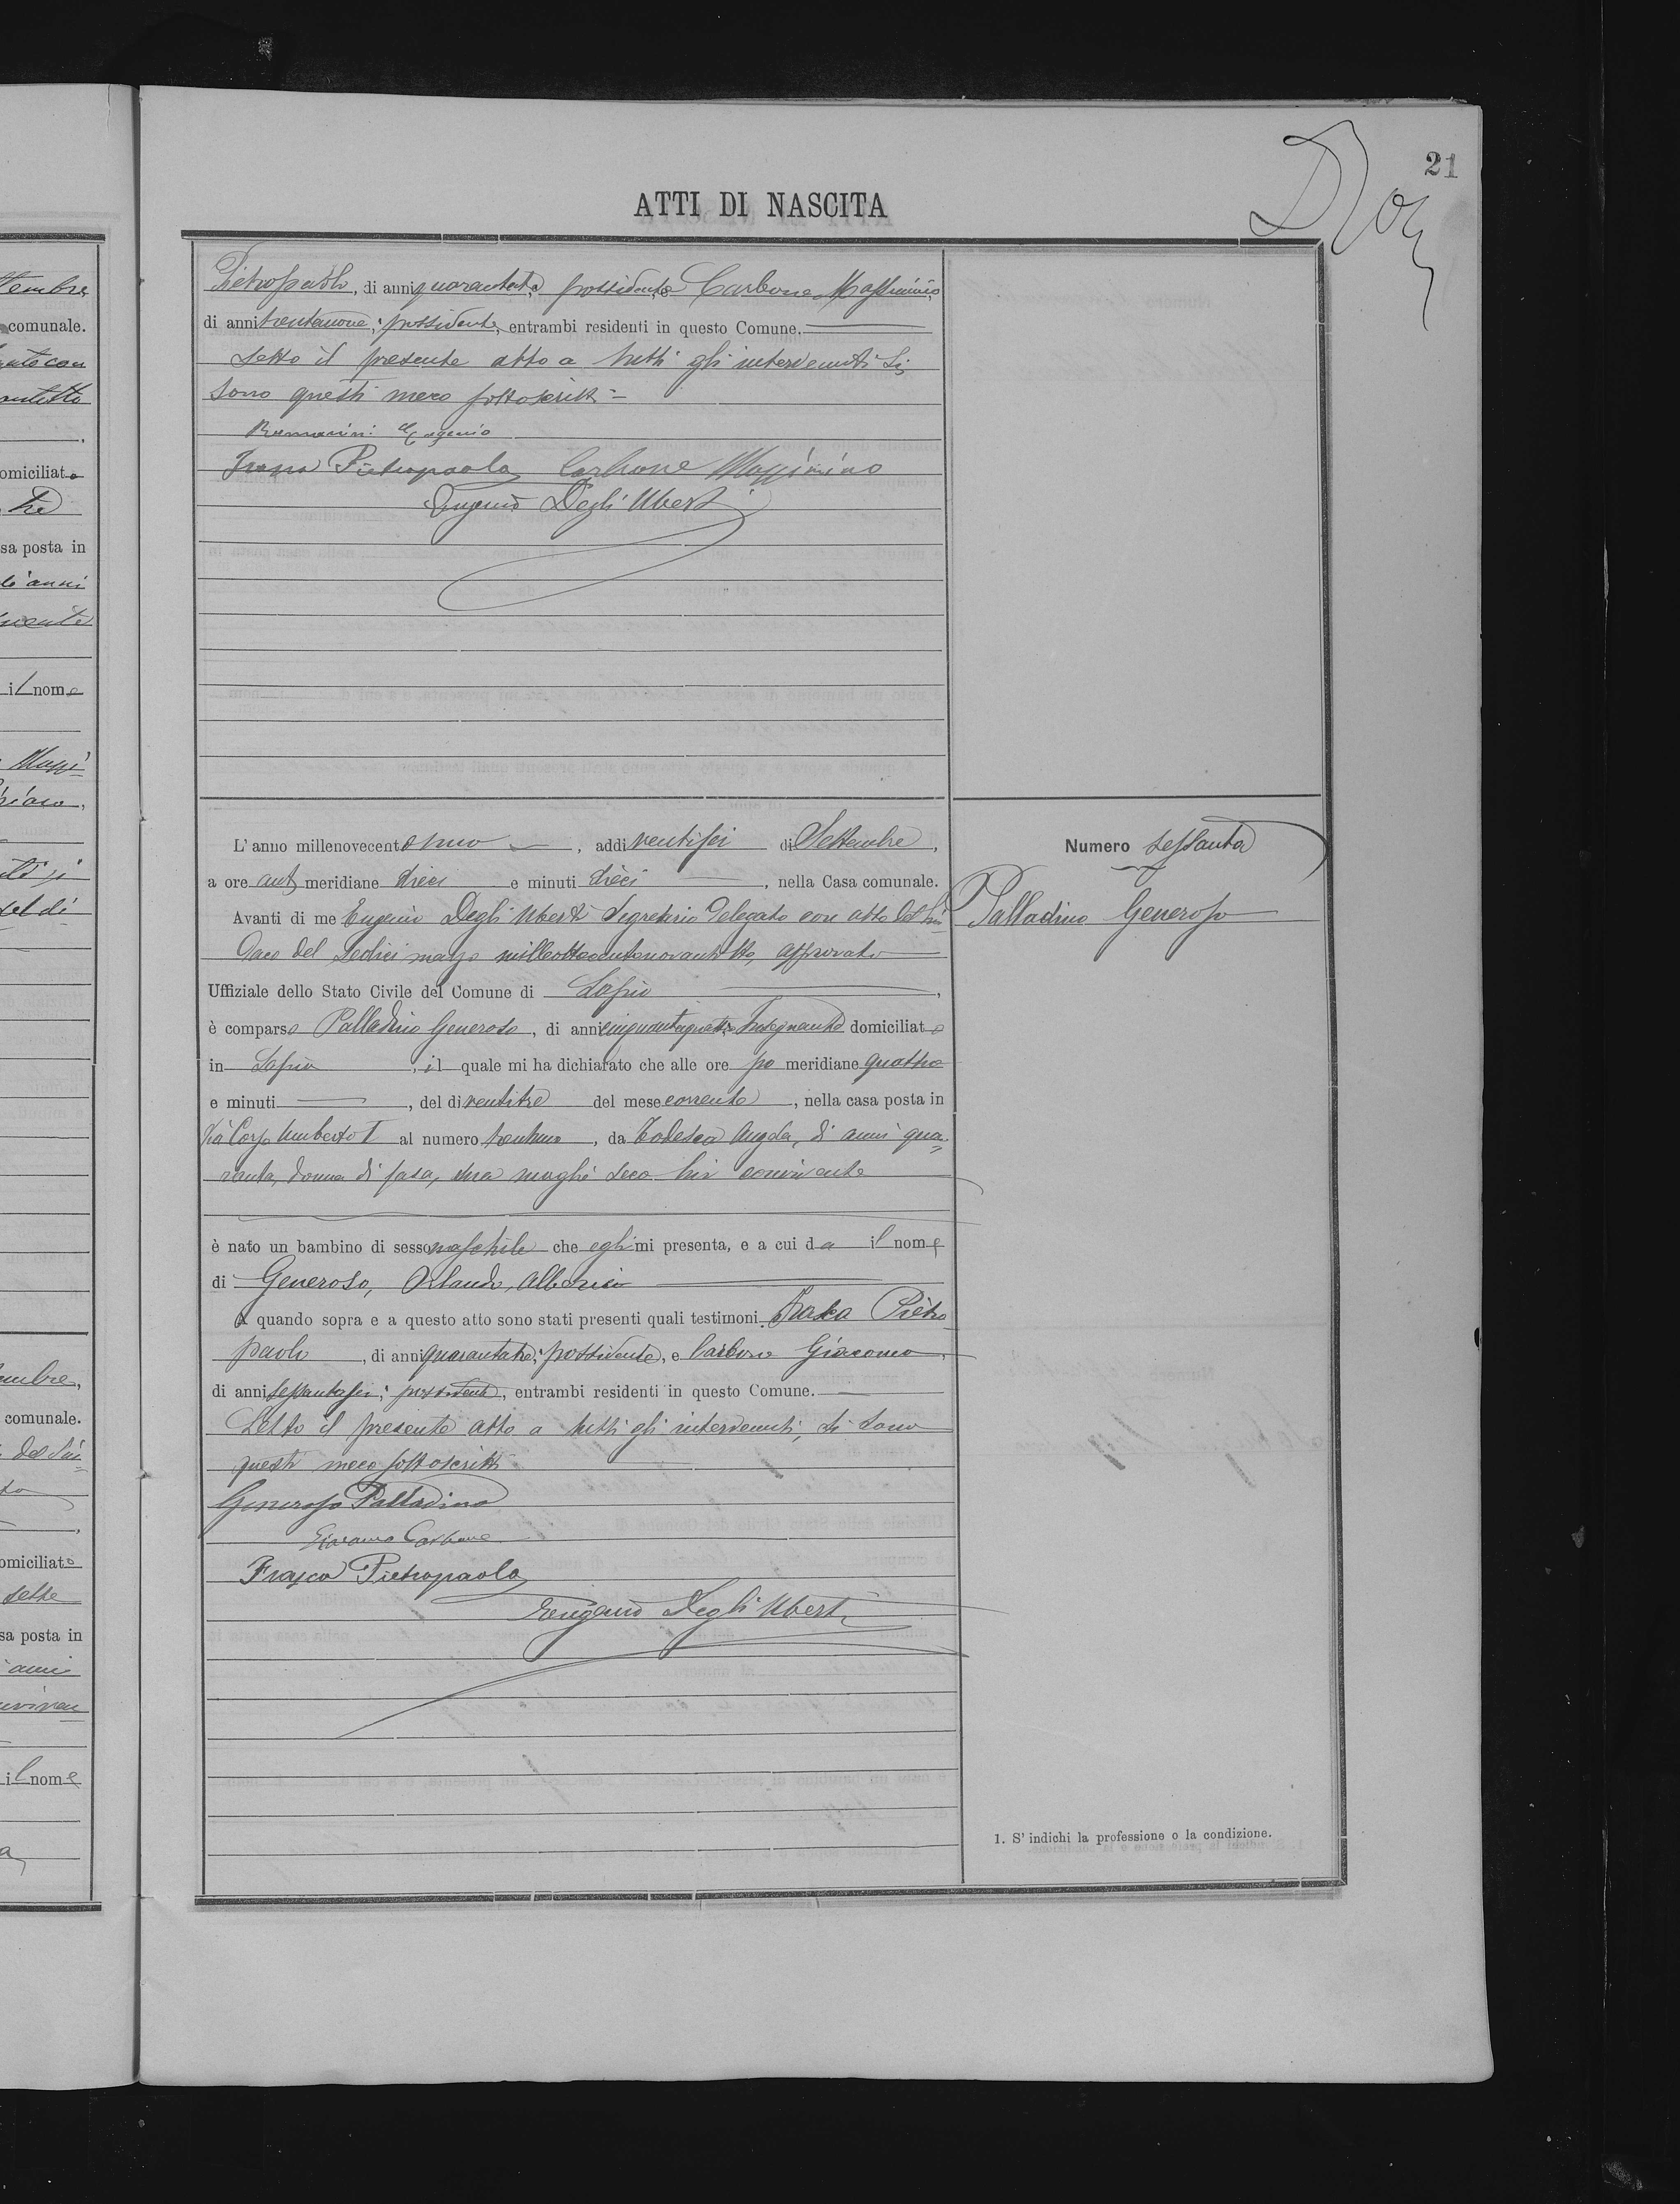 21
ATTI DI NASCITA
Pietropaolo, di anni quarantatre possidente, e Carbone Massimino,
di anni trentanove, possidente, entrambi residenti in questo Comune.
Letto il presente atto a tutti gli intervenuti si
sono questi meco sottoscritti =
Eugenio
Frasca Pietropaolo Carbone Massimino
Eugenio Degli Uberti
L'anno millenovecento uno, addi ventisei di Settembre,
a ore anti meridiane dieci e minuti dieci, nella Casa comunale.
Avanti di me Eugenio Degli Uberti Segretario Delegato con atto del Sin=
daco del sedici marzo milleottocentonovantotto, approvato
Uffiziale dello Stato Civile del Comune di Lapio,
è comparso Palladino Generoso, di anni cinquantaquattro Insegnante domiciliato
in Lapio, il quale mi ha dichiarato che alle ore po meridiane quattro
e minuti, del dì ventitre del mese corrente, nella casa posta in
Via Corso Umberto I al numero trentuno, da Todesca Angela, di anni qua=
ranta, donna di casa, sua moglie seco lui convivente
è nato un bambino di sesso maschile che egli mi presenta, e a cui da il nome
di Generoso, Orlando, Alberico
A quando sopra e a questo atto sono stati presenti quali testimoni Frasca Pietro
paolo, di anni quarantatre, possidente, e Carbone Giacomo,
di anni sessantasei, possidente, entrambi residenti in questo Comune.
Letto il presente atto a tutti gli intervenuti, si sono
questi meco sottoscritti
Generoso Palladino
Giacomo Carbone
Frasca Pietropaolo
Eugenio Degli Uberti
Numero sessanta
Palladino Generoso
1. S'indichi la professione o la condizione.
tembre
comunale.
domiciliato
tre
sa posta in
anni
il nome
embre,
comunale.
del Sin=
domiciliato
sette
sa posta in
anni
il nome